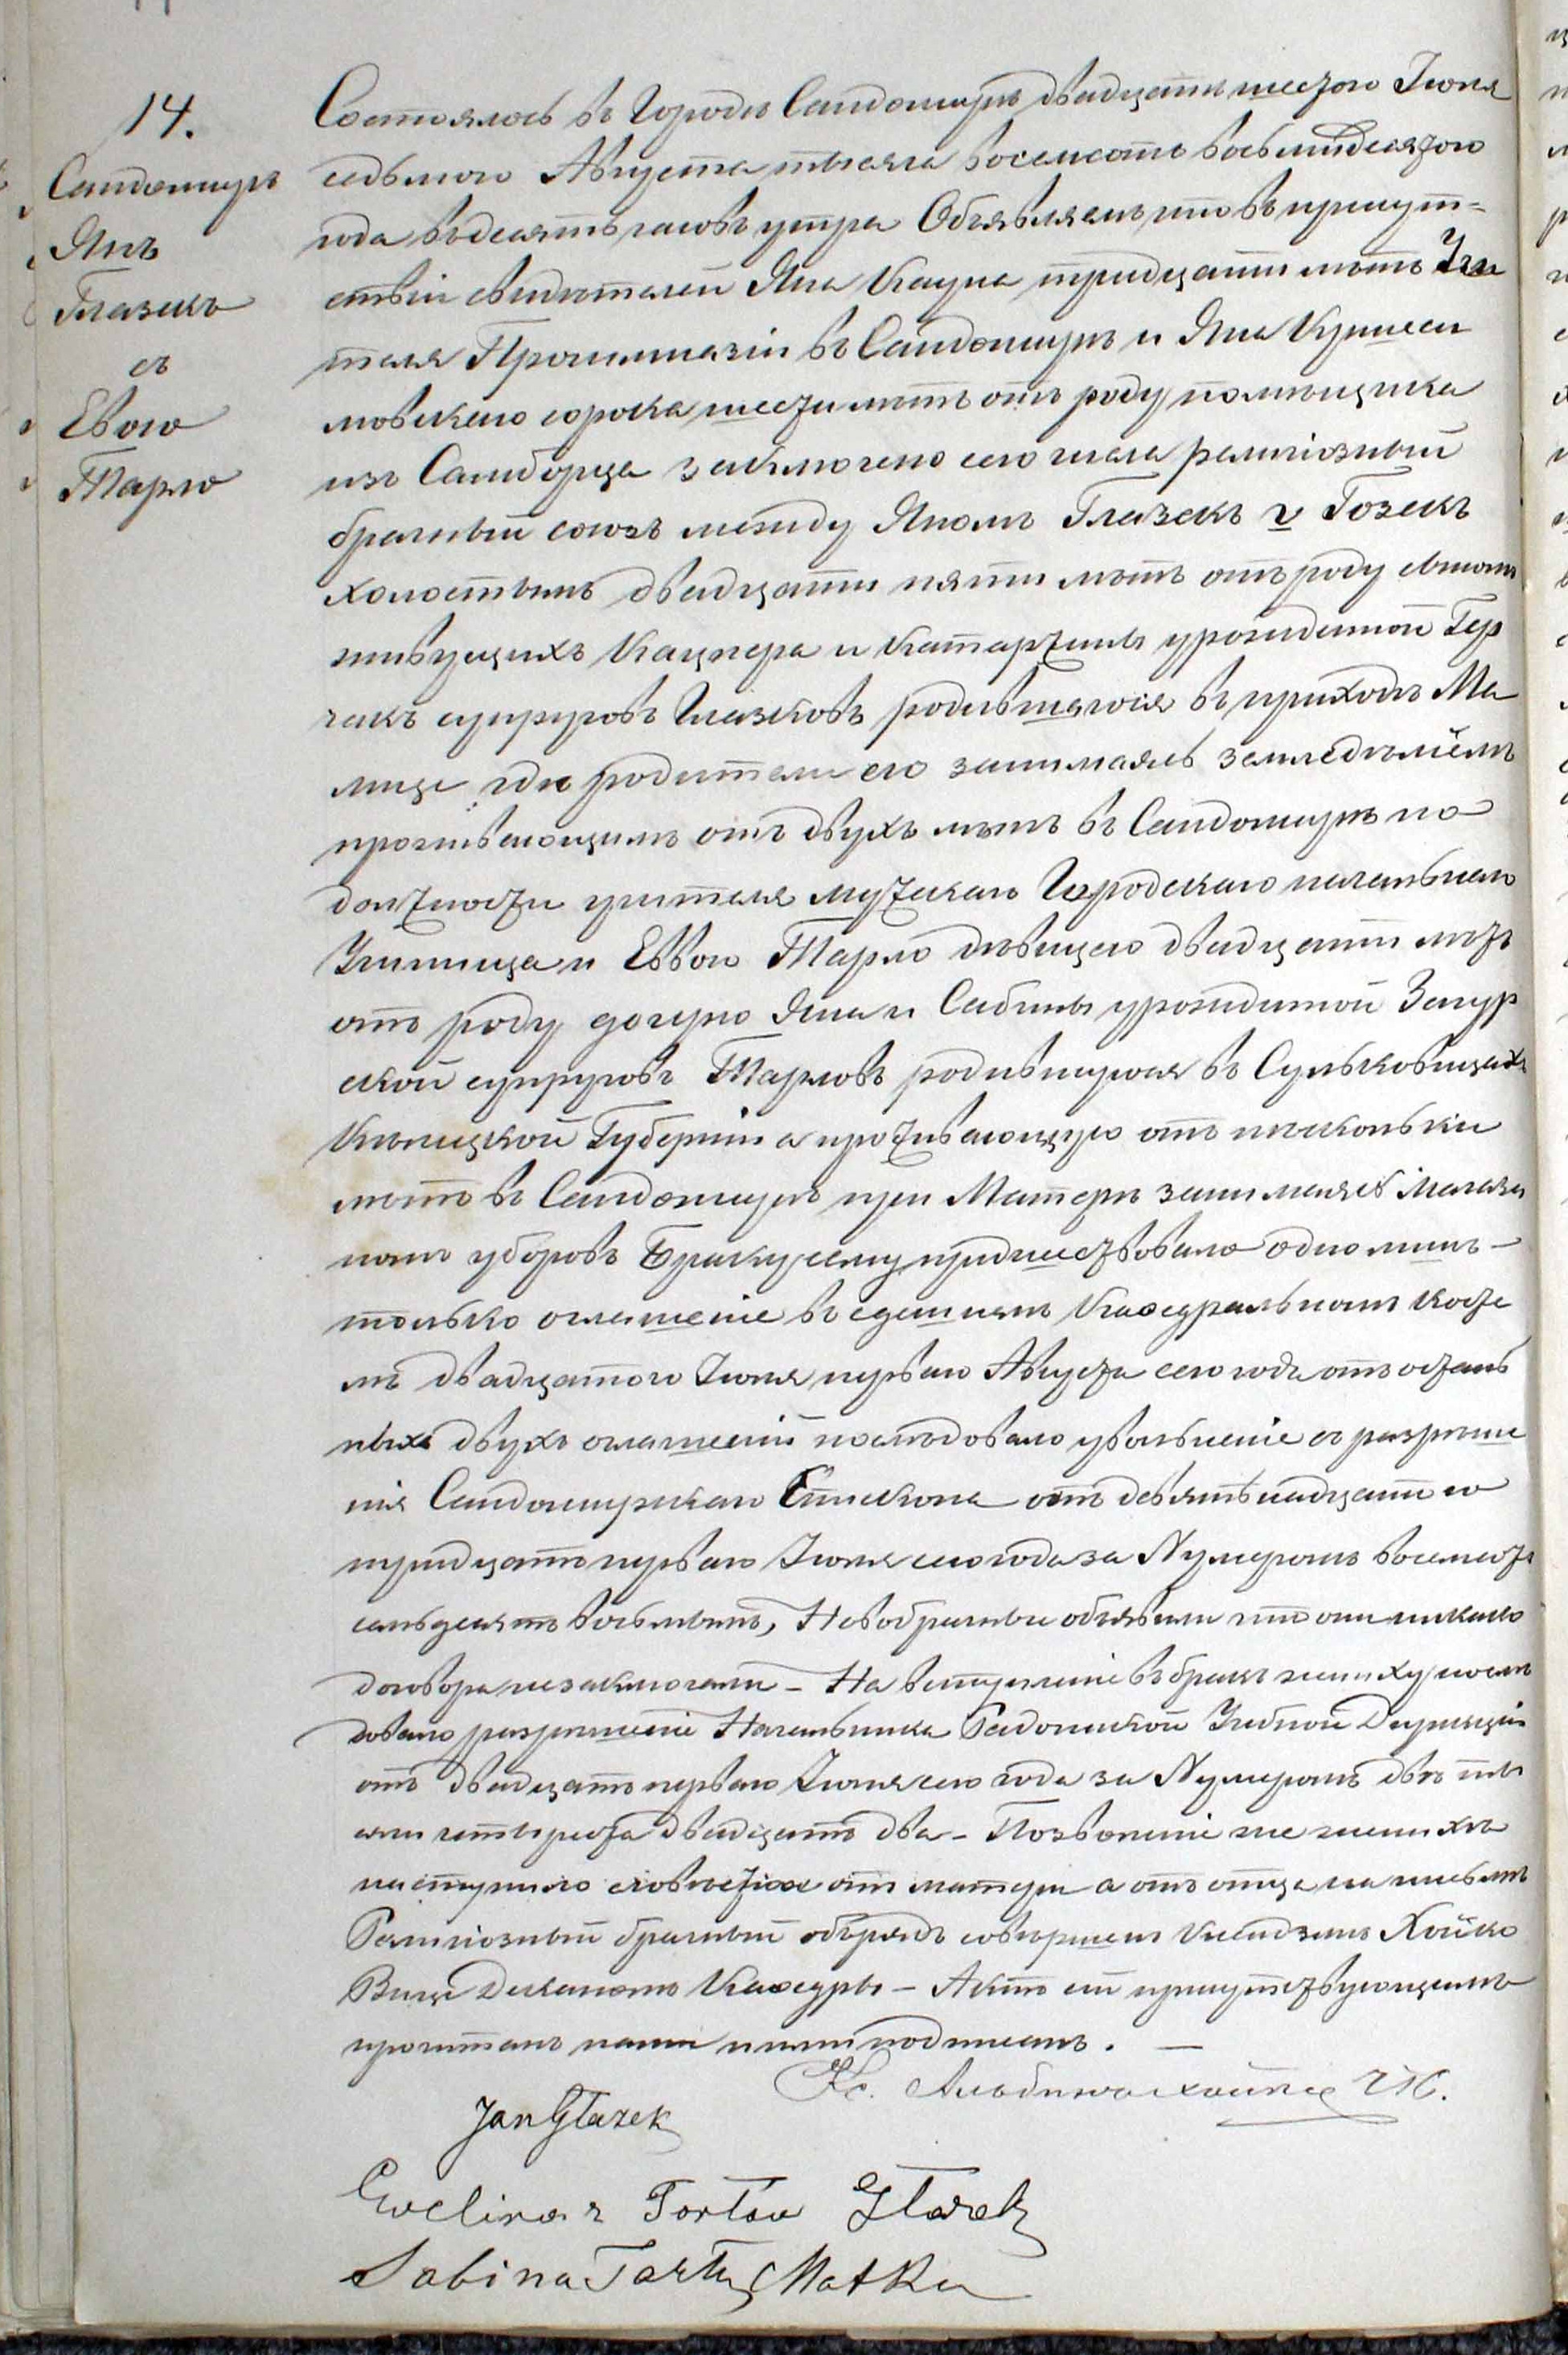 14.
Сандомиръ
Янъ
Глазекъ
съ
Евою
Тарло
Состоялось въ Городѣ Сандомирѣ двадцать шестого Іюля
седьмого Августа тысяча восемсотъ восьмидесятого
года въ десять часовъ утра Объявляемъ что въ присут-
ствіи свидѣтелей Яна Кацпа тридцати лѣтъ Учи
теля Прогимназіи въ Сандомирѣ и Яна
мовскаго сорока шести лѣтъ отъ роду помѣщика
изъ Самборца заключено сего числа религіозный
брачный союзъ между Яномъ Глазекъ v Гозекъ
холостымъ двадцати пяти лѣтъ отъ роду сыномъ
живущихъ Кацпера и Катаржины урожденной Гер
чакъ супруговъ Глазковъ родившагося въ приходѣ Ма
лице гдѣ родители его занимаясь земледѣліемъ
проживающимъ отъ двухъ лѣтъ въ Сандомирѣ по
должности учителя мужскаго Городскаго начальнаго
Училища и Еввою Тарло дѣвицею двадцати лѣтъ
отъ роду дочерю Яна и Сабины урожденной Загур
ской супруговъ Тарловъ родившуюся въ Сульковицахъ
Кѣлецкой Губерніи а проживающую отъ нѣсколько
лѣтъ въ Сандомирѣ при Матерѣ занимаясь магази
номъ уборовъ Браку сему предшествовало одно лишь-
только оглашеніе въ сдешнемъ Каѳедральномъ Косте
лѣ двадцатого Іюля первого Августа сего года отъ осталь
ныхъ двухъ оглашеній послѣдовало увольненіе съ разрѣше
нія Сандомирскаго Епископа отъ девятьнадцатого
тридцать первого Іюля сего года за Нумеромъ восемьсотъ
семьдесятъ восьмымъ, Новобрачные объявили что они никако
договора не заключали - На вступленіе въ бракъ жениху послѣ
довало разрѣшеніе Начальника Радомской Учебной Дирекціи
отъ двадцать первого Іюля сего года за Нумеромъ двѣ ты
сячи четыреста двадцать два - Позволеніе же
наступило словесное отъ матери а отъ отца на письмѣ
Религіозный брачный обрядъ совершенъ Ксендзомъ Хойко
Вице Деканомъ Каѳедры - Актъ сей присутствующимъ
прочитанъ нами и ими подписанъ. —
Кс. Альбинъ
Jan Głazek
Ewelina z Tarłów Głazek
Sabina Tarło Matka